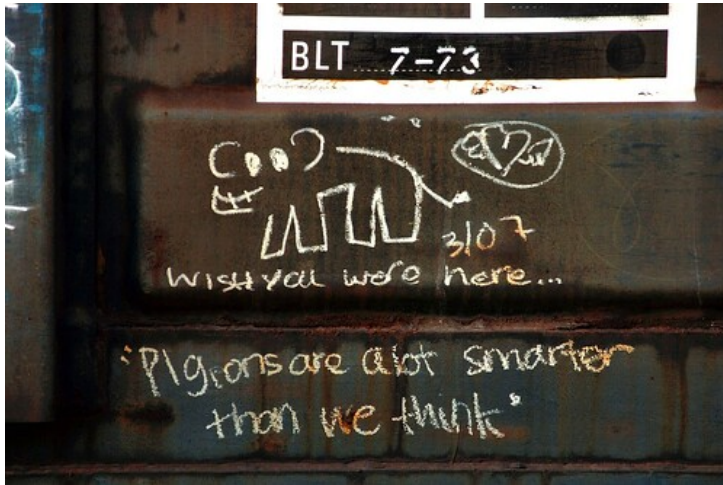 BLT 7-73
3/07
Wish you were here...
"Pigions are a lot smarter
than we think"